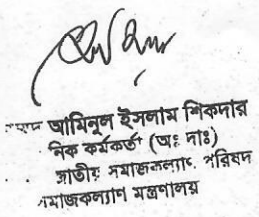 আমিনুল ইসলাম শিকদার
কর্মকর্তা (অঃ দাঃ)
জাতীয় সমাজকল্যাণ পরিষদ
সমাজকল্যাণ মন্ত্রণালয়